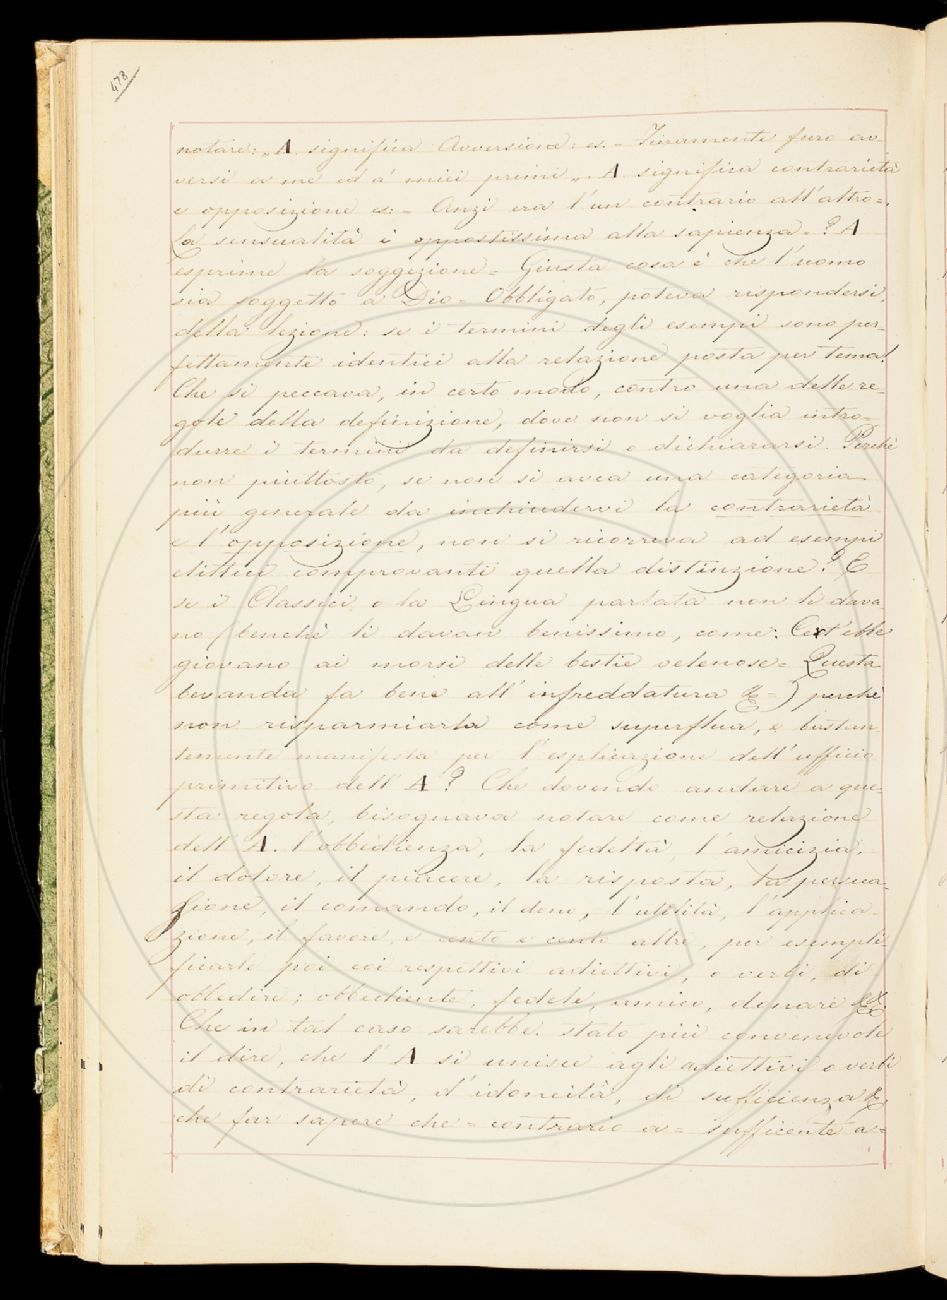 478
notare: „A significa Avversione: es. = Fieramente furo av-
versi a me ed a' miei primi „. A significa contrarietà
e opposizione es: = Anzi era l'un contrario all'altro =.
La sensualità è oppostissima alla sapienza =? A
esprime la soggezione = Giusta cosa è che l'uomo
sia soggetto a Dio = Obbligato, poteva rispondersi,
della lezione: se i termini degli esempi sono per-
fettamente identici alla relazione posta per tema!
Che si peccava, in certo modo, contro una delle re-
gole della definizione, dove non si voglia intro-
durre i termini da definirsi o dichiararsi. Perchè
non piuttosto, se non si avea una categoria
più generale da inchiudervi la contrarietà
e l'opposizione, non si ricorreva ad esempi
elittici comprovanti quella distinzione? E
se i Classici o la Lingua parlata non li dava-
no (benchè li davan benissimo, come: Cert'erbe
giovano ai morsi delle bestie velenose = Questa
bevanda fa bene all'infreddatura &=) perchè
non risparmiarla come superflua, e bastan-
temente manifesta per l'esplicazione dell'ufficio
primitivo dell'A? Che dovendo andare a que-
sta regola, bisognava notare come relazione
dell'A. l'obbedienza, la fedeltà, l'amicizia,
il dolore, il piacere, la risposta, la persua-
sione, il comando, il dono, l'utilità, l'applica-
zione, il favore, e cento e cento altre, per esempli-
ficarle poi coi respettivi adiettivi, o verbi, di
obbedire; obbediente, fedele, amico, donare &&
Che in tal caso sarebbe stato più convenevole
il dire, che l'A si unisce agli adiettivi o verbi
di contrarietà, d'idoneità, di sufficienza &,
che far sapere che = contrario a = sufficente a =